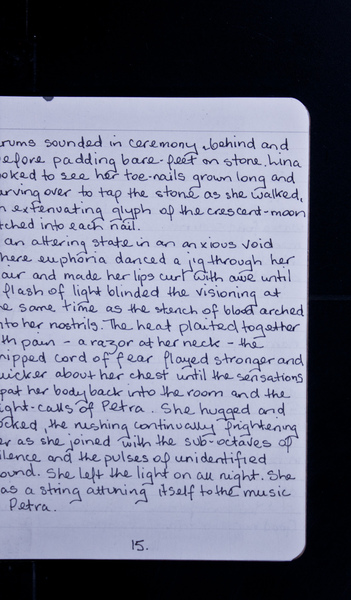 rums sounded in ceremony, behind and
efore padding bare-feet on stone. Lina
oked to see her toe-nails grown long and
urving over to tap the stone as she walked,
n extenuating glyph of the crescent-moon
tched into each nail.
an altering state in an anxious void
here euphoria danced a jig through her
air and made her lips curl with awe until
flash of light blinded the visioning at
e same time as the stench of blood arched
nto her nostrils. The heat plaited together
th pain - a razor at her neck - the
ripped cord of fear flayed stronger and
uicker about her chest until the sensations
pat her body back into the room and the
ight-calls of Petra. She hugged and
ocked, the rushing continually frightening
er as she joined with the sub-octaves of
ilence and the pulses of unidentified
ound. She left the light on all night. She
as a string attuning itself to the music
Petra.
15.